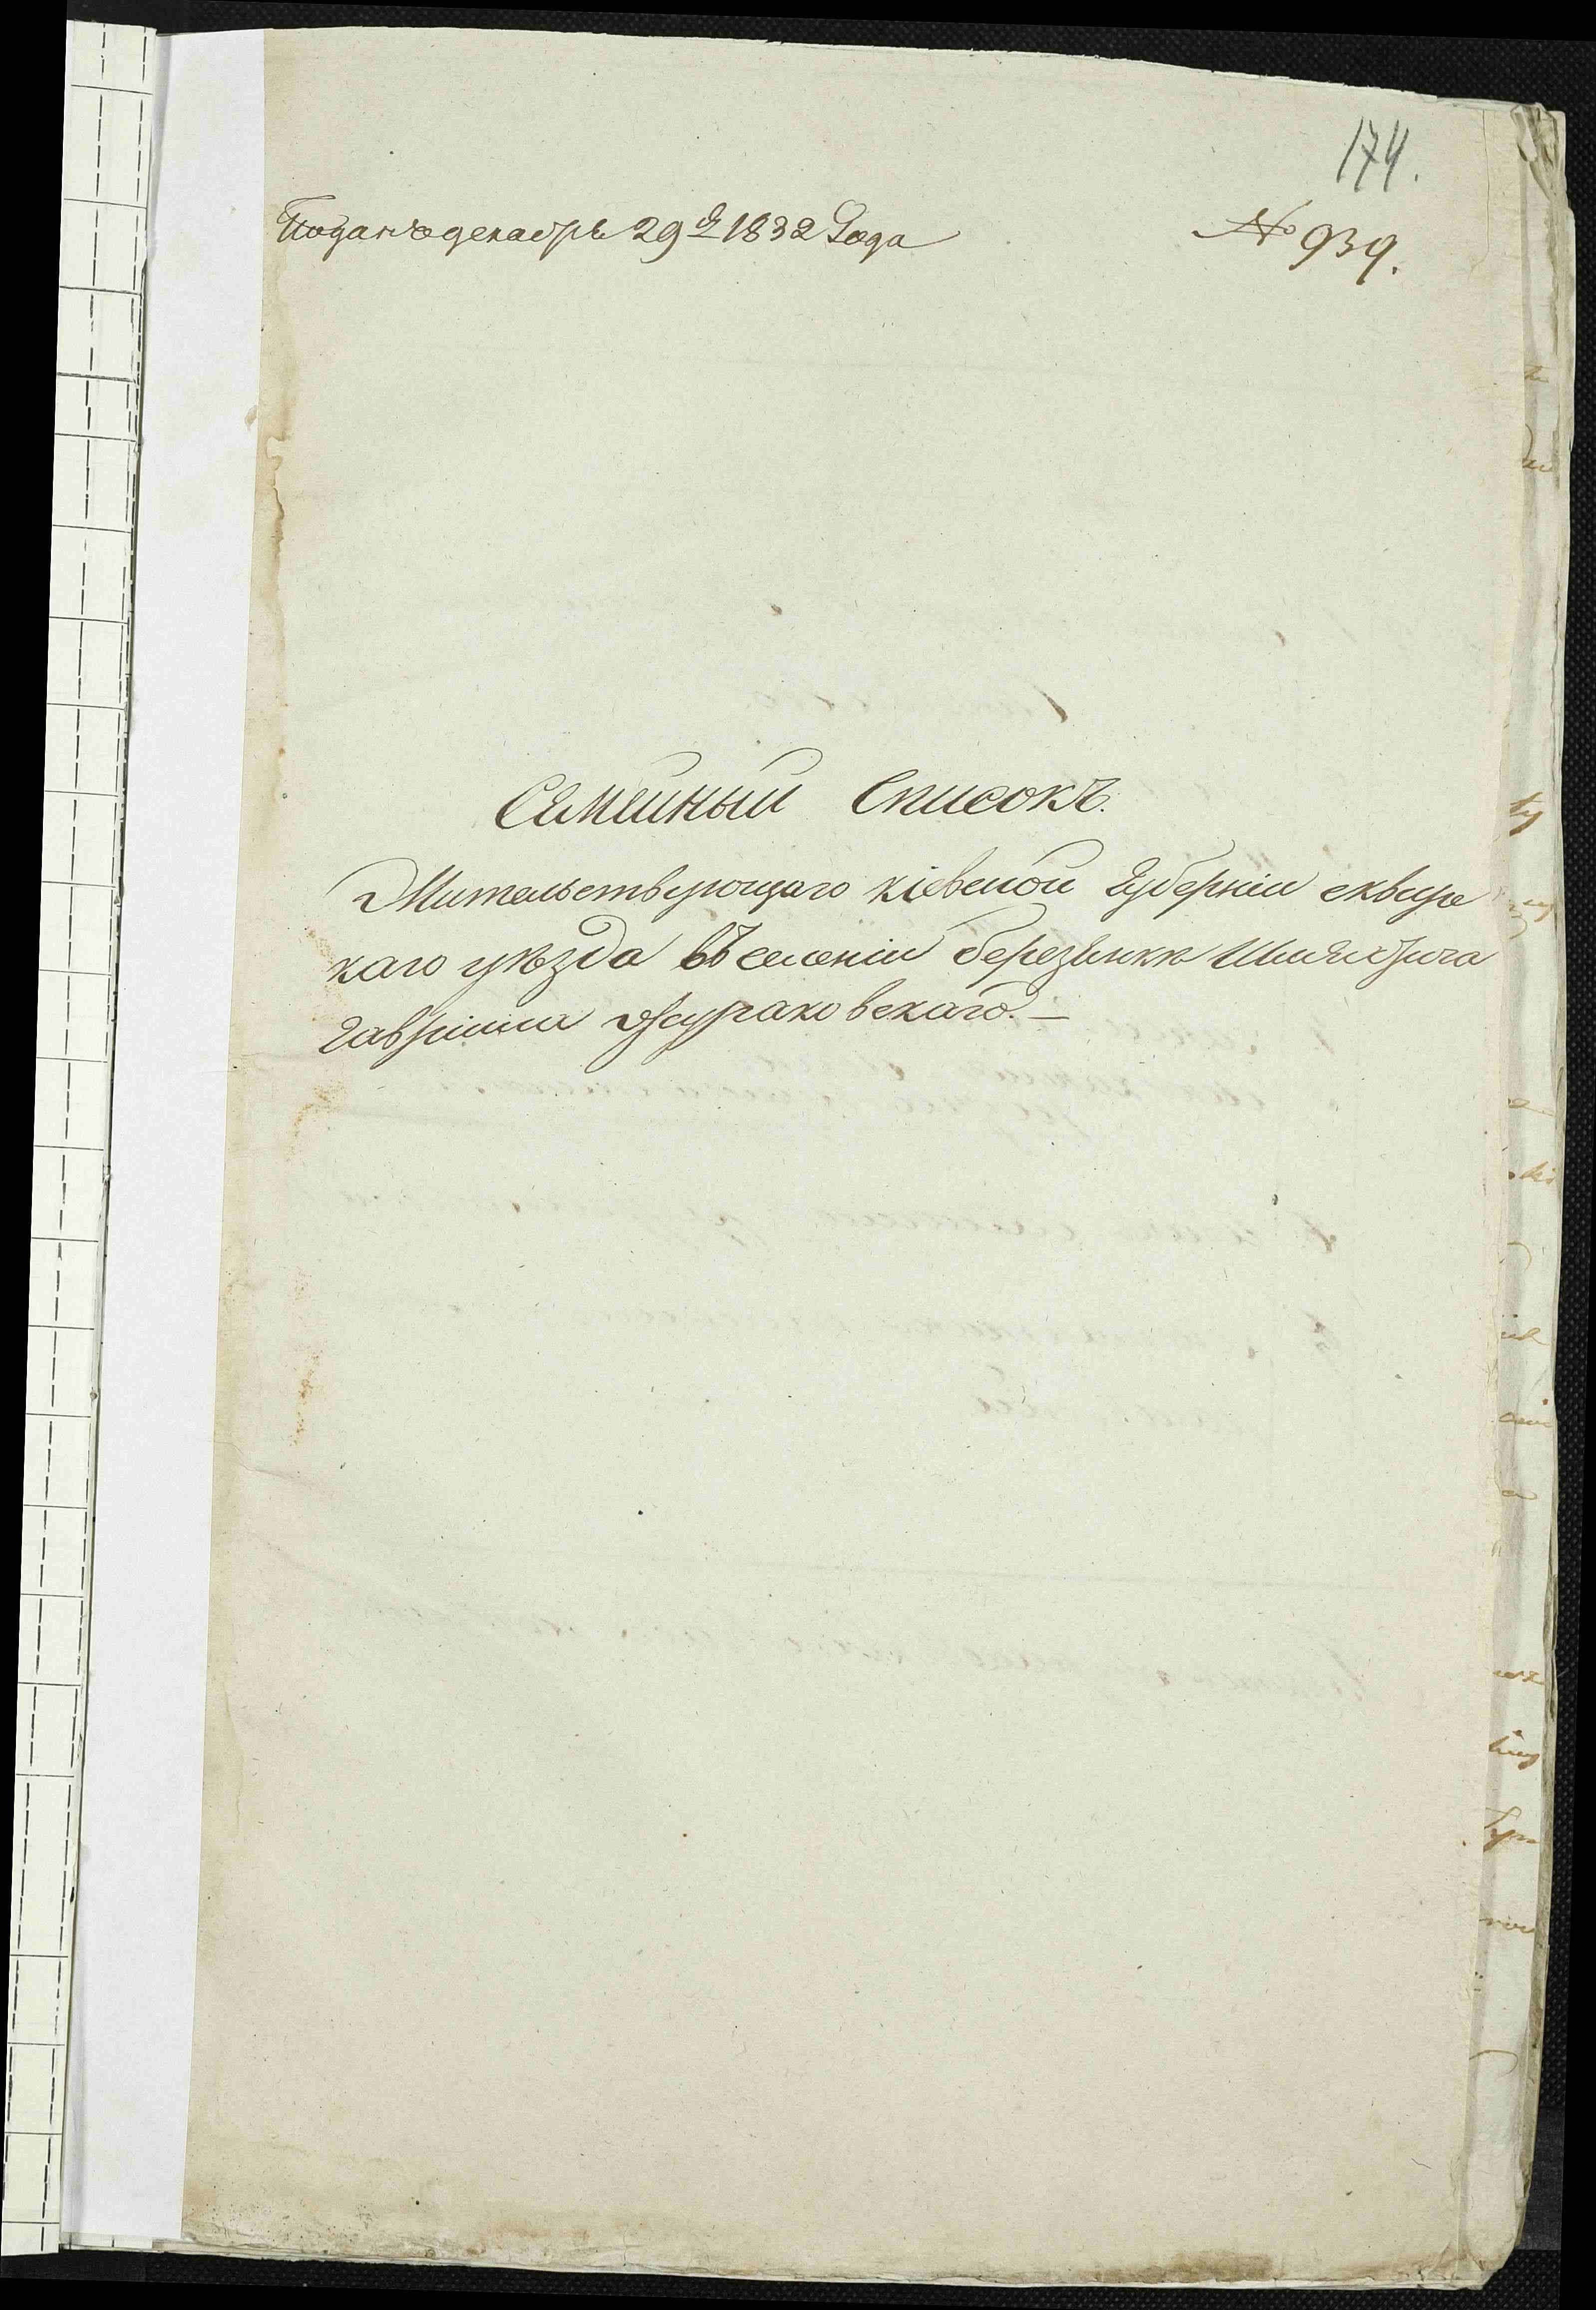 174.
Поданъ декабря 29 д 1832 Года
№ 939.
Семейный Списокъ.
Жительствующаго кіевской Губерніи сквирс
каго уѣзда въ селеніи березянкѣ Шляхтича
гавріила Жураковскаго. —